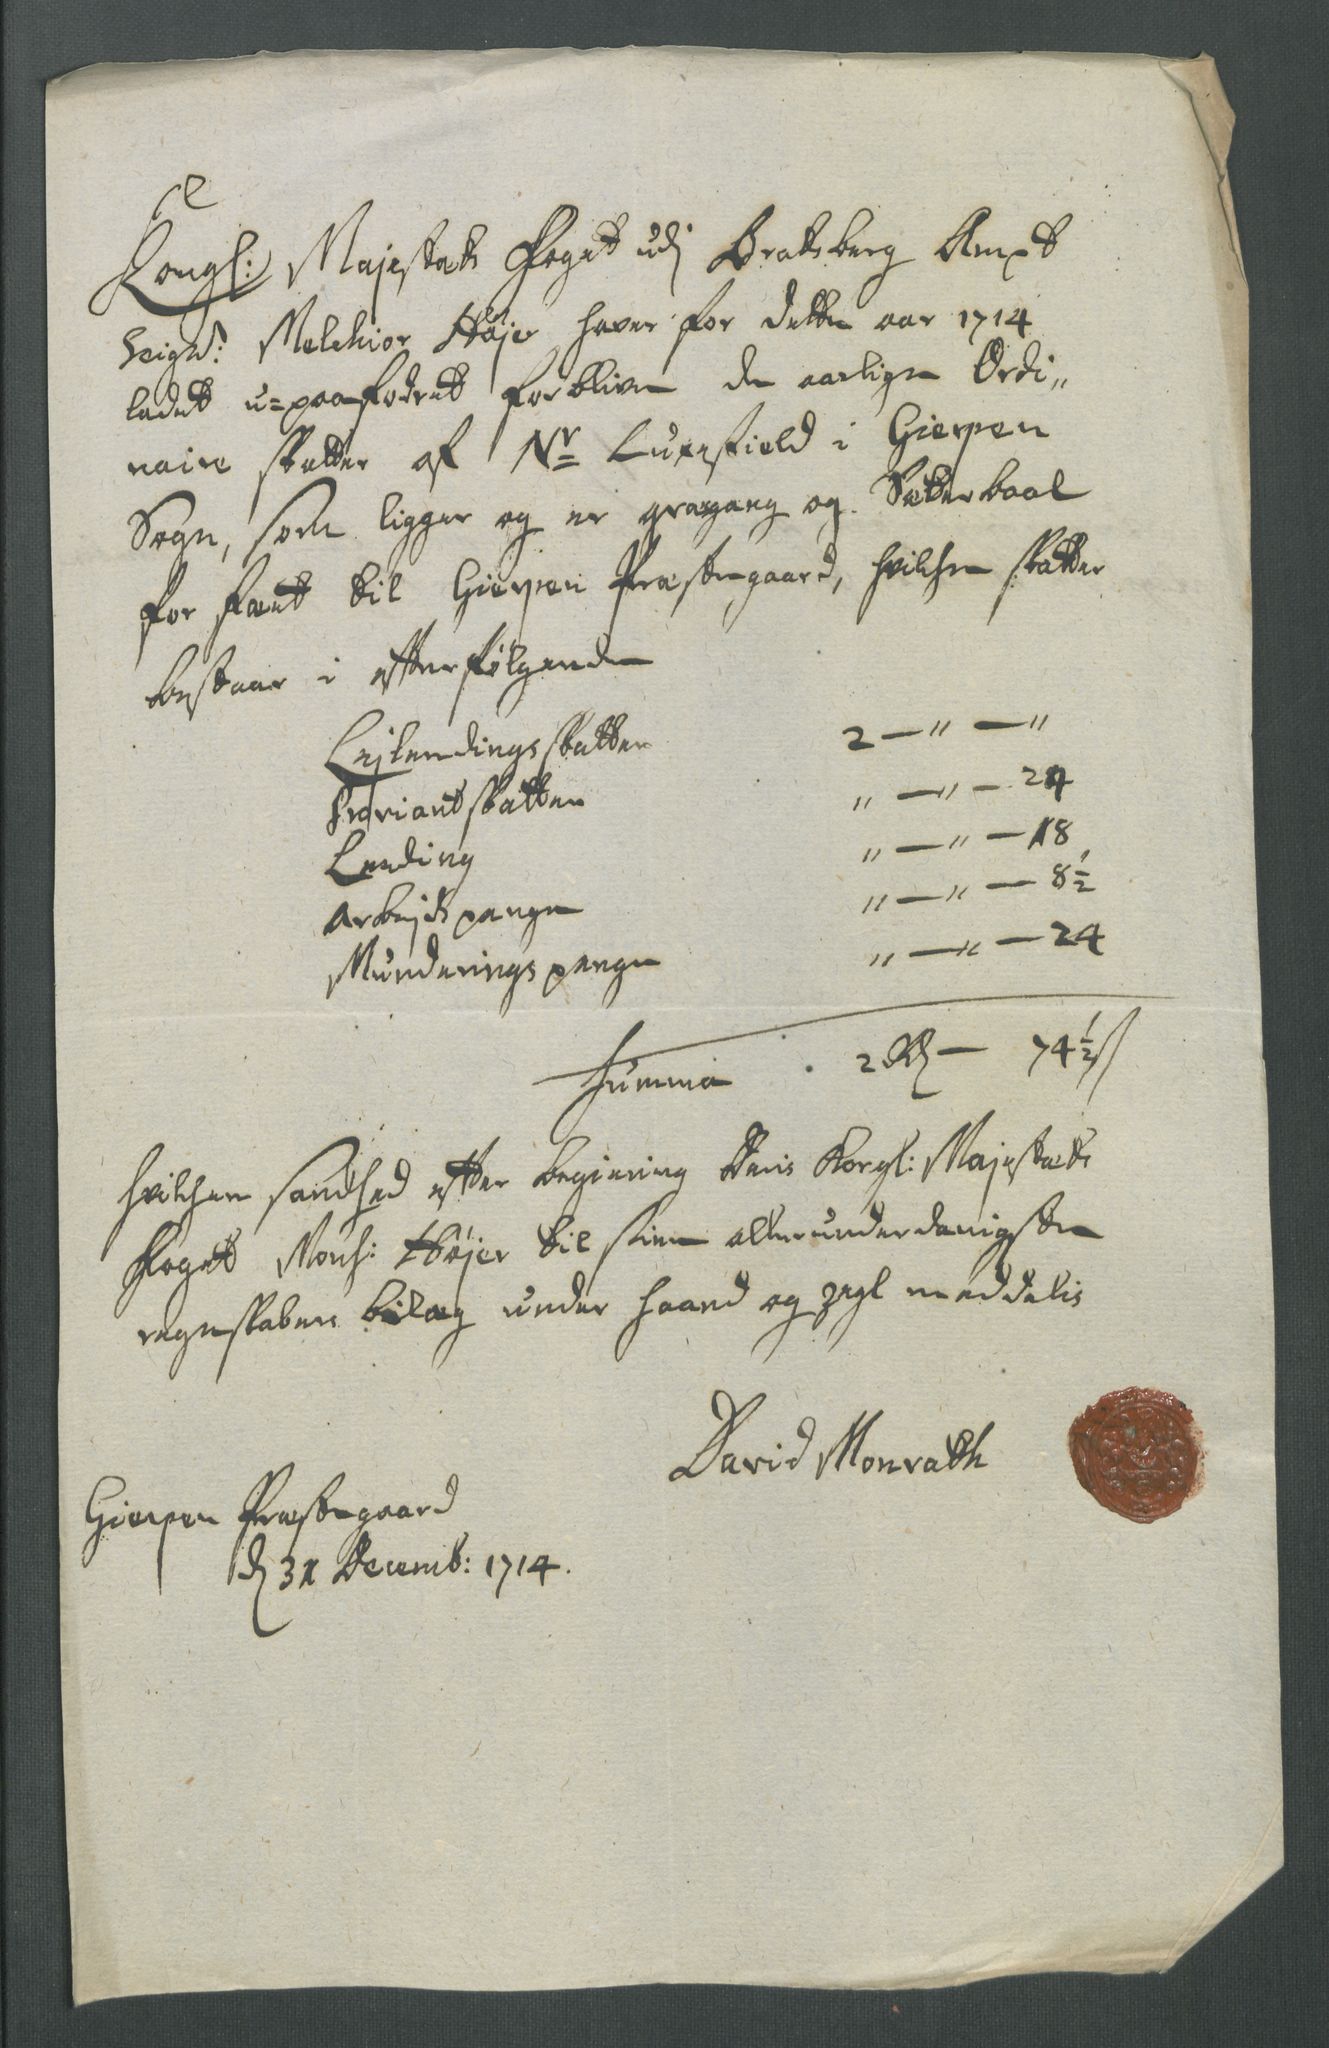 Kongl: Majestæts Foget udj Bratsberg Ampt
Seigr: Melchior Højer haver for dette aar 1714
ladet u=paafodret forblive de aarlige Ordi„
naire skatter af Nr Luxefield i Gierpen
Sogn, som ligger og er græsgang og Sæterbool
for fæet til Gierpen Præstegaard, hvilche skatter
bestaar i efterfølgende
Lejlendings skatten 2 — " — "
Proviantskatten " — " — 24
Leeding " — " — 18
Arbejds penge " — " — 8½
Munderings penge " — " — 24
Summa 2 Rd — 74½ s
hvilchen sandhed efter begiering Hans Kongl: Majestæts
Foget Mons: Højer til sine allerunderdanigste
regenskabers bilag under haand og zegl meddelis
David Monrath
Gierpen Præstegaard
d 31 Decemb: 1714.